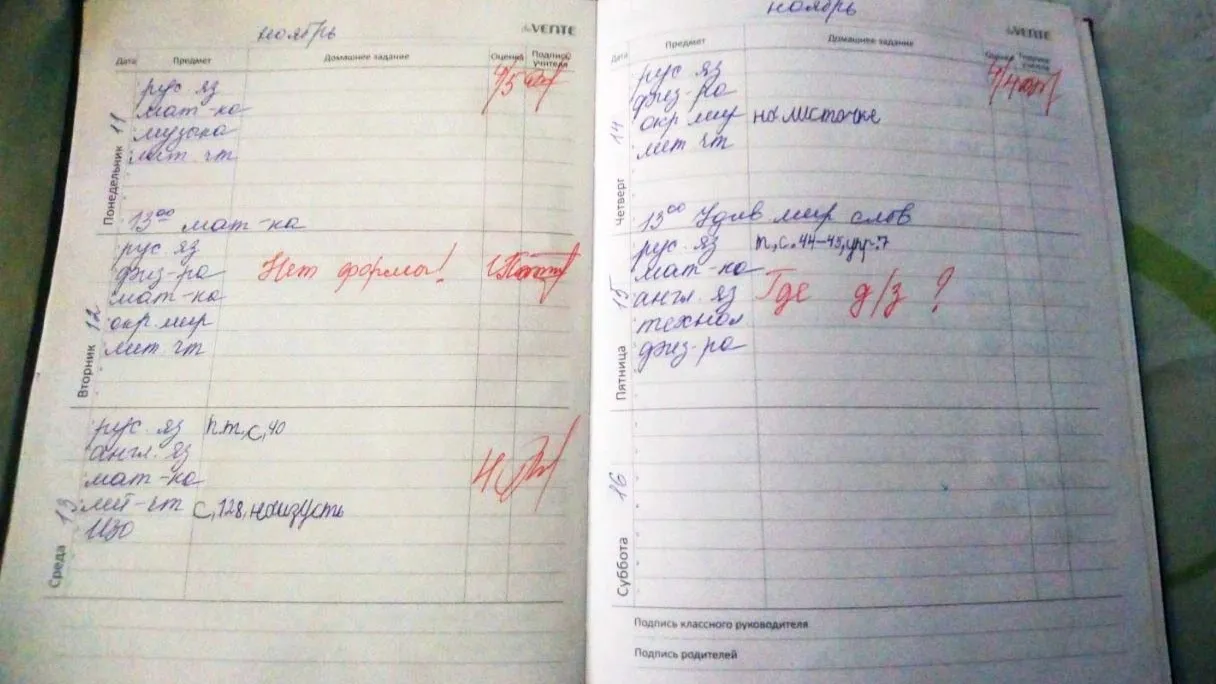 ноябрь
deVENTE
Дата Предмет Домашнее задание Оценка Подпись учителя
Понедельник 11
рус яз 4/5
мат-ка
музыка
лит чт
13⁰⁰ мат-ка
Вторник 12
рус яз
физ-ра Нет формы!
мат-ка
окр. мир
лит. чт
Среда 13
рус. яз п.т, с, 40
англ. яз
мат-ка 4
лит-чт с, 128, наизусть
ИЗО
ноябрь
deVENTE
Дата Предмет Домашнее задание Оценка Подпись учителя
Четверг 14
рус яз 4/4
физ-ра
окр. мир на листочке
лит чт
13⁰⁰ Удив мир слов
Пятница 15
рус. яз п, с. 44-45, упр. 7
мат-ка
англ. яз Где д/з ?
технол
физ-ра
Суббота 16
Подпись классного руководителя
Подпись родителей